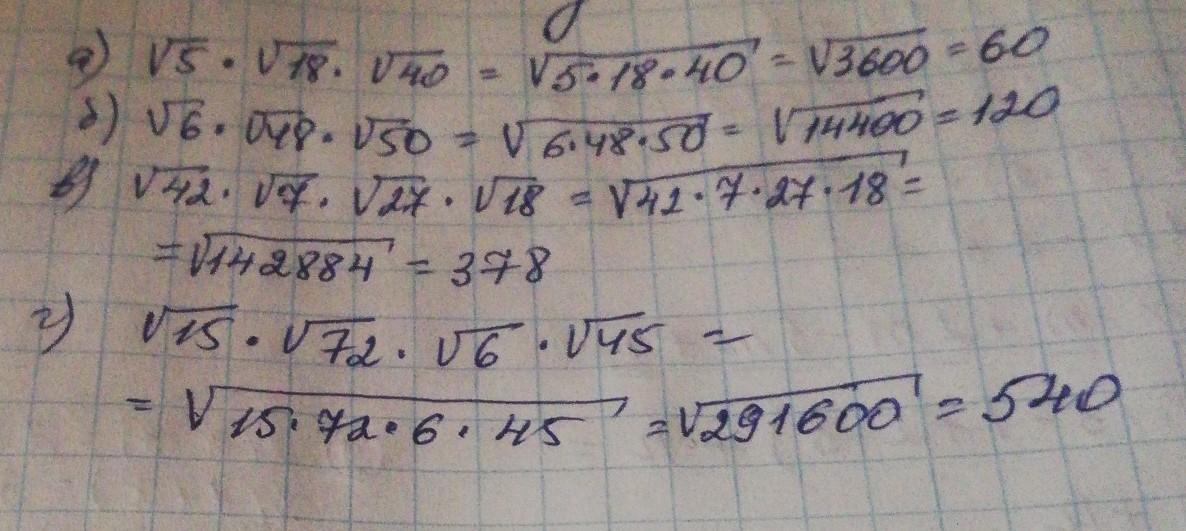 а) √5 · √18 · √40 = √5·18·40 = √3600 = 60
б) √6 · √48 · √50 = √6·48·50 = √14400 = 120
в) √42 · √7 · √27 · √18 = √42·7·27·18 =
= √142884 = 378
г) √15 · √72 · √6 · √45 =
= √15·72·6·45 = √291600 = 540